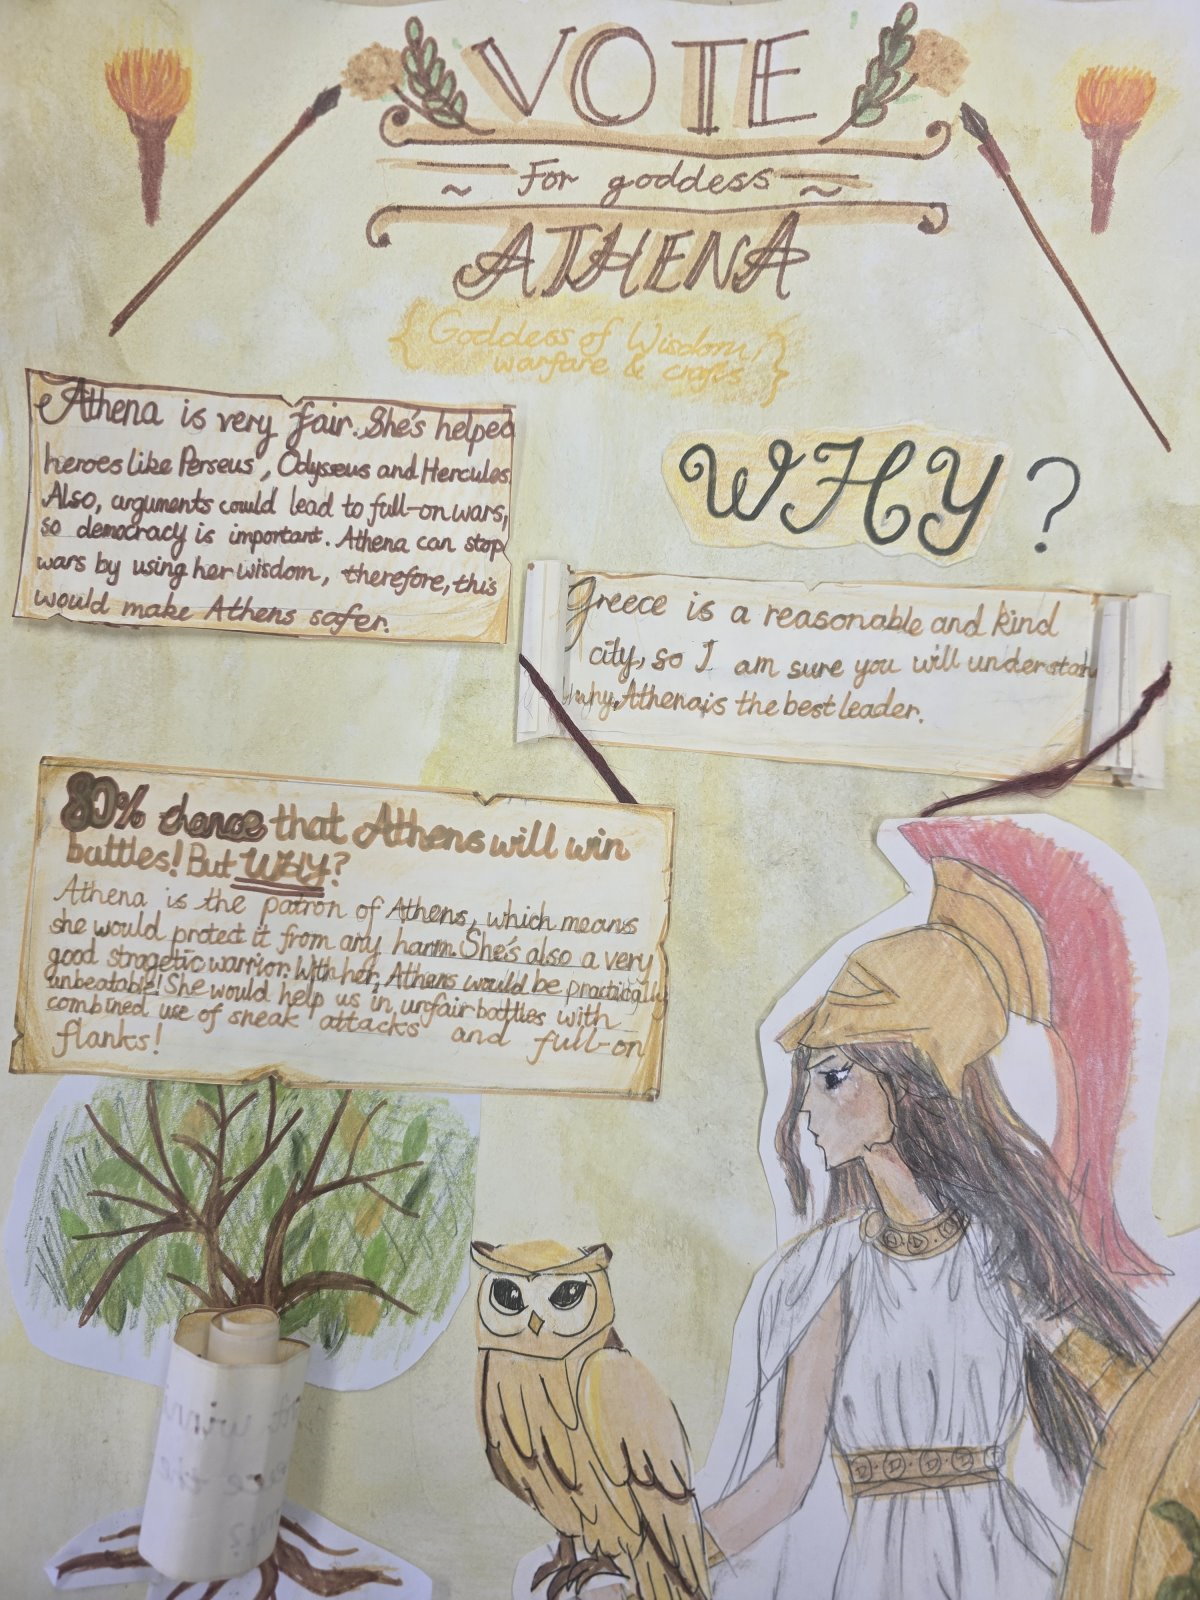 VOTE
~ For goddess ~
ATHENA
{Goddess of Wisdom,
warfare & crafts}
Athena is very fair. She's helped
heroes like Perseus, Odysseus and Hercules.
Also, arguments could lead to full-on wars,
so democracy is important. Athena can stop
wars by using her wisdom, therefore, this
would make Athens safer.
WHY?
Greece is a reasonable and kind
city, so I am sure you will understand
why, Athena is the best leader.
80% chance that Athens will win
battles! But WHY?
Athena is the patron of Athens, which means
she would protect it from any harm. She's also a very
good stragetic warrior. With her, Athens would be practically
unbeatable! She would help us in unfair battles with
combined use of sneak attacks and full-on
flanks!